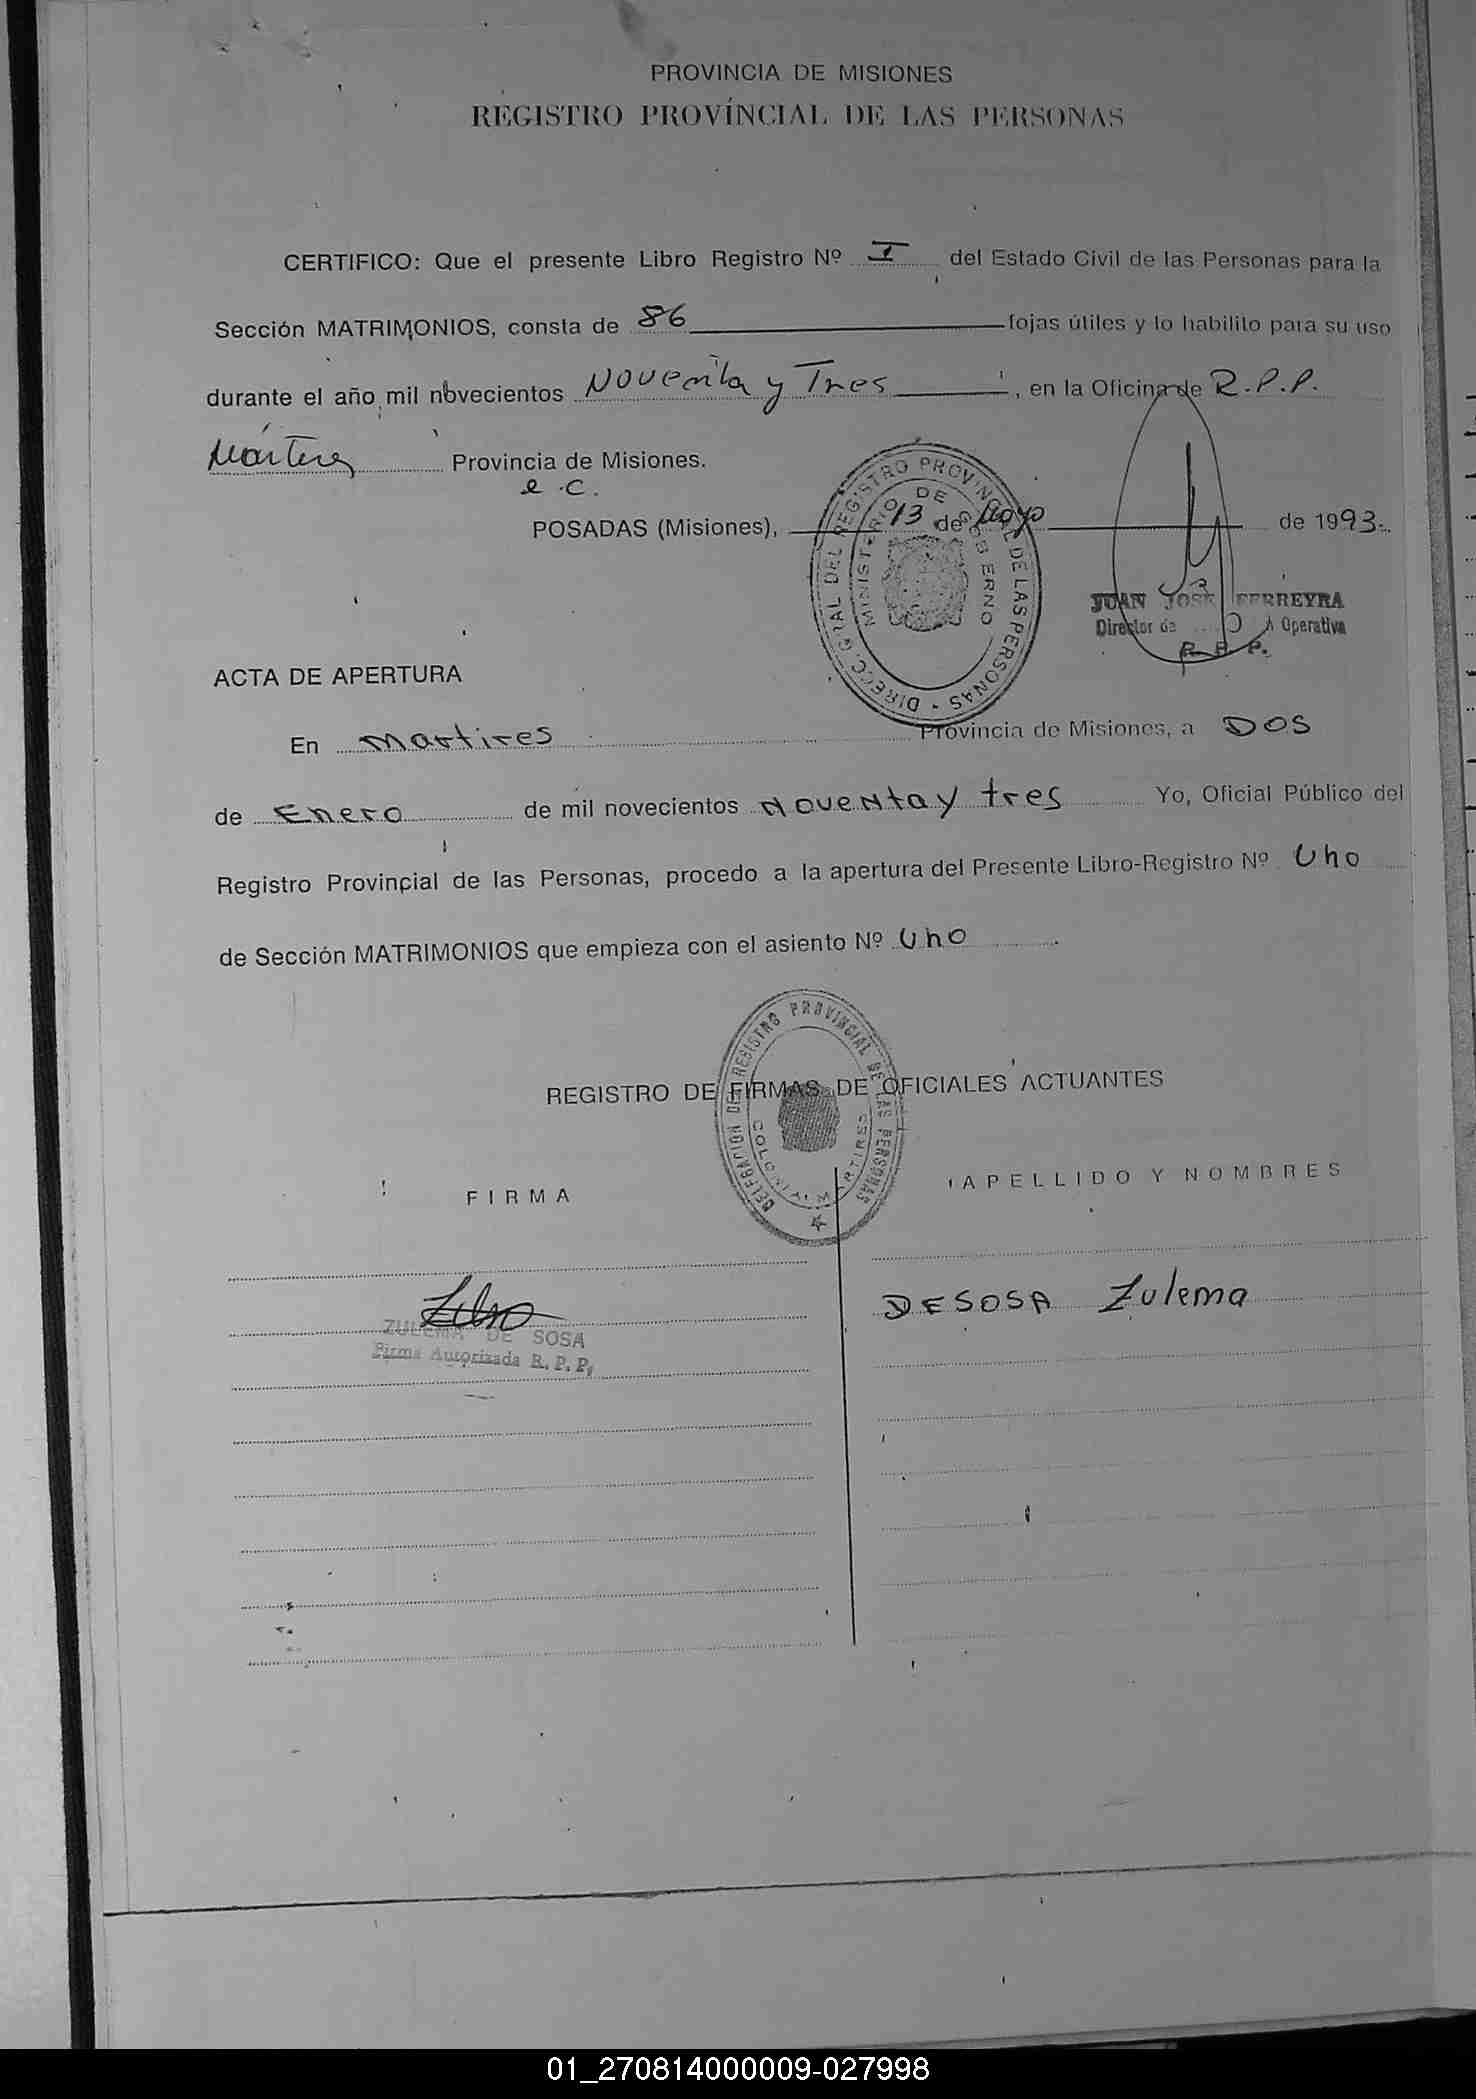 PROVINCIA DE MISIONES
REGISTRO PROVÍNCIAL DE LAS PERSONAS
CERTIFICO: Que el presente Libro Registro Nº I del Estado Civil de las Personas para la
Sección MATRIMONIOS, consta de 86 fojas útiles y lo habilito para su uso
durante el año mil novecientos Noventa y Tres, en la Oficina de R.P.P.
Mártires Provincia de Misiones.
e.c.
POSADAS (Misiones), 13 de Mayo de 1993.
DIRECC. GRAL DEL REGISTRO PROVINCIAL DE LAS PERSONAS
MINISTERIO DE GOBIERNO
JUAN JOSE FERREYRA
Director de Operativa
R. P. P.
ACTA DE APERTURA
En Martires Provincia de Misiones, a DOS
de Enero de mil novecientos Noventa y tres Yo, Oficial Público del
Registro Provincial de las Personas, procedo a la apertura del Presente Libro-Registro Nº Uno
de Sección MATRIMONIOS que empieza con el asiento Nº Uno.
DELEGACION DEL REGISTRO PROVINCIAL DE LAS PERSONAS
COLONIA MARTIRES
REGISTRO DE FIRMAS DE OFICIALES ACTUANTES
FIRMA APELLIDO Y NOMBRES
DE SOSA Zulema
ZULEMA DE SOSA
Firma Autorizada R. P. P.
01_270814000009-027998